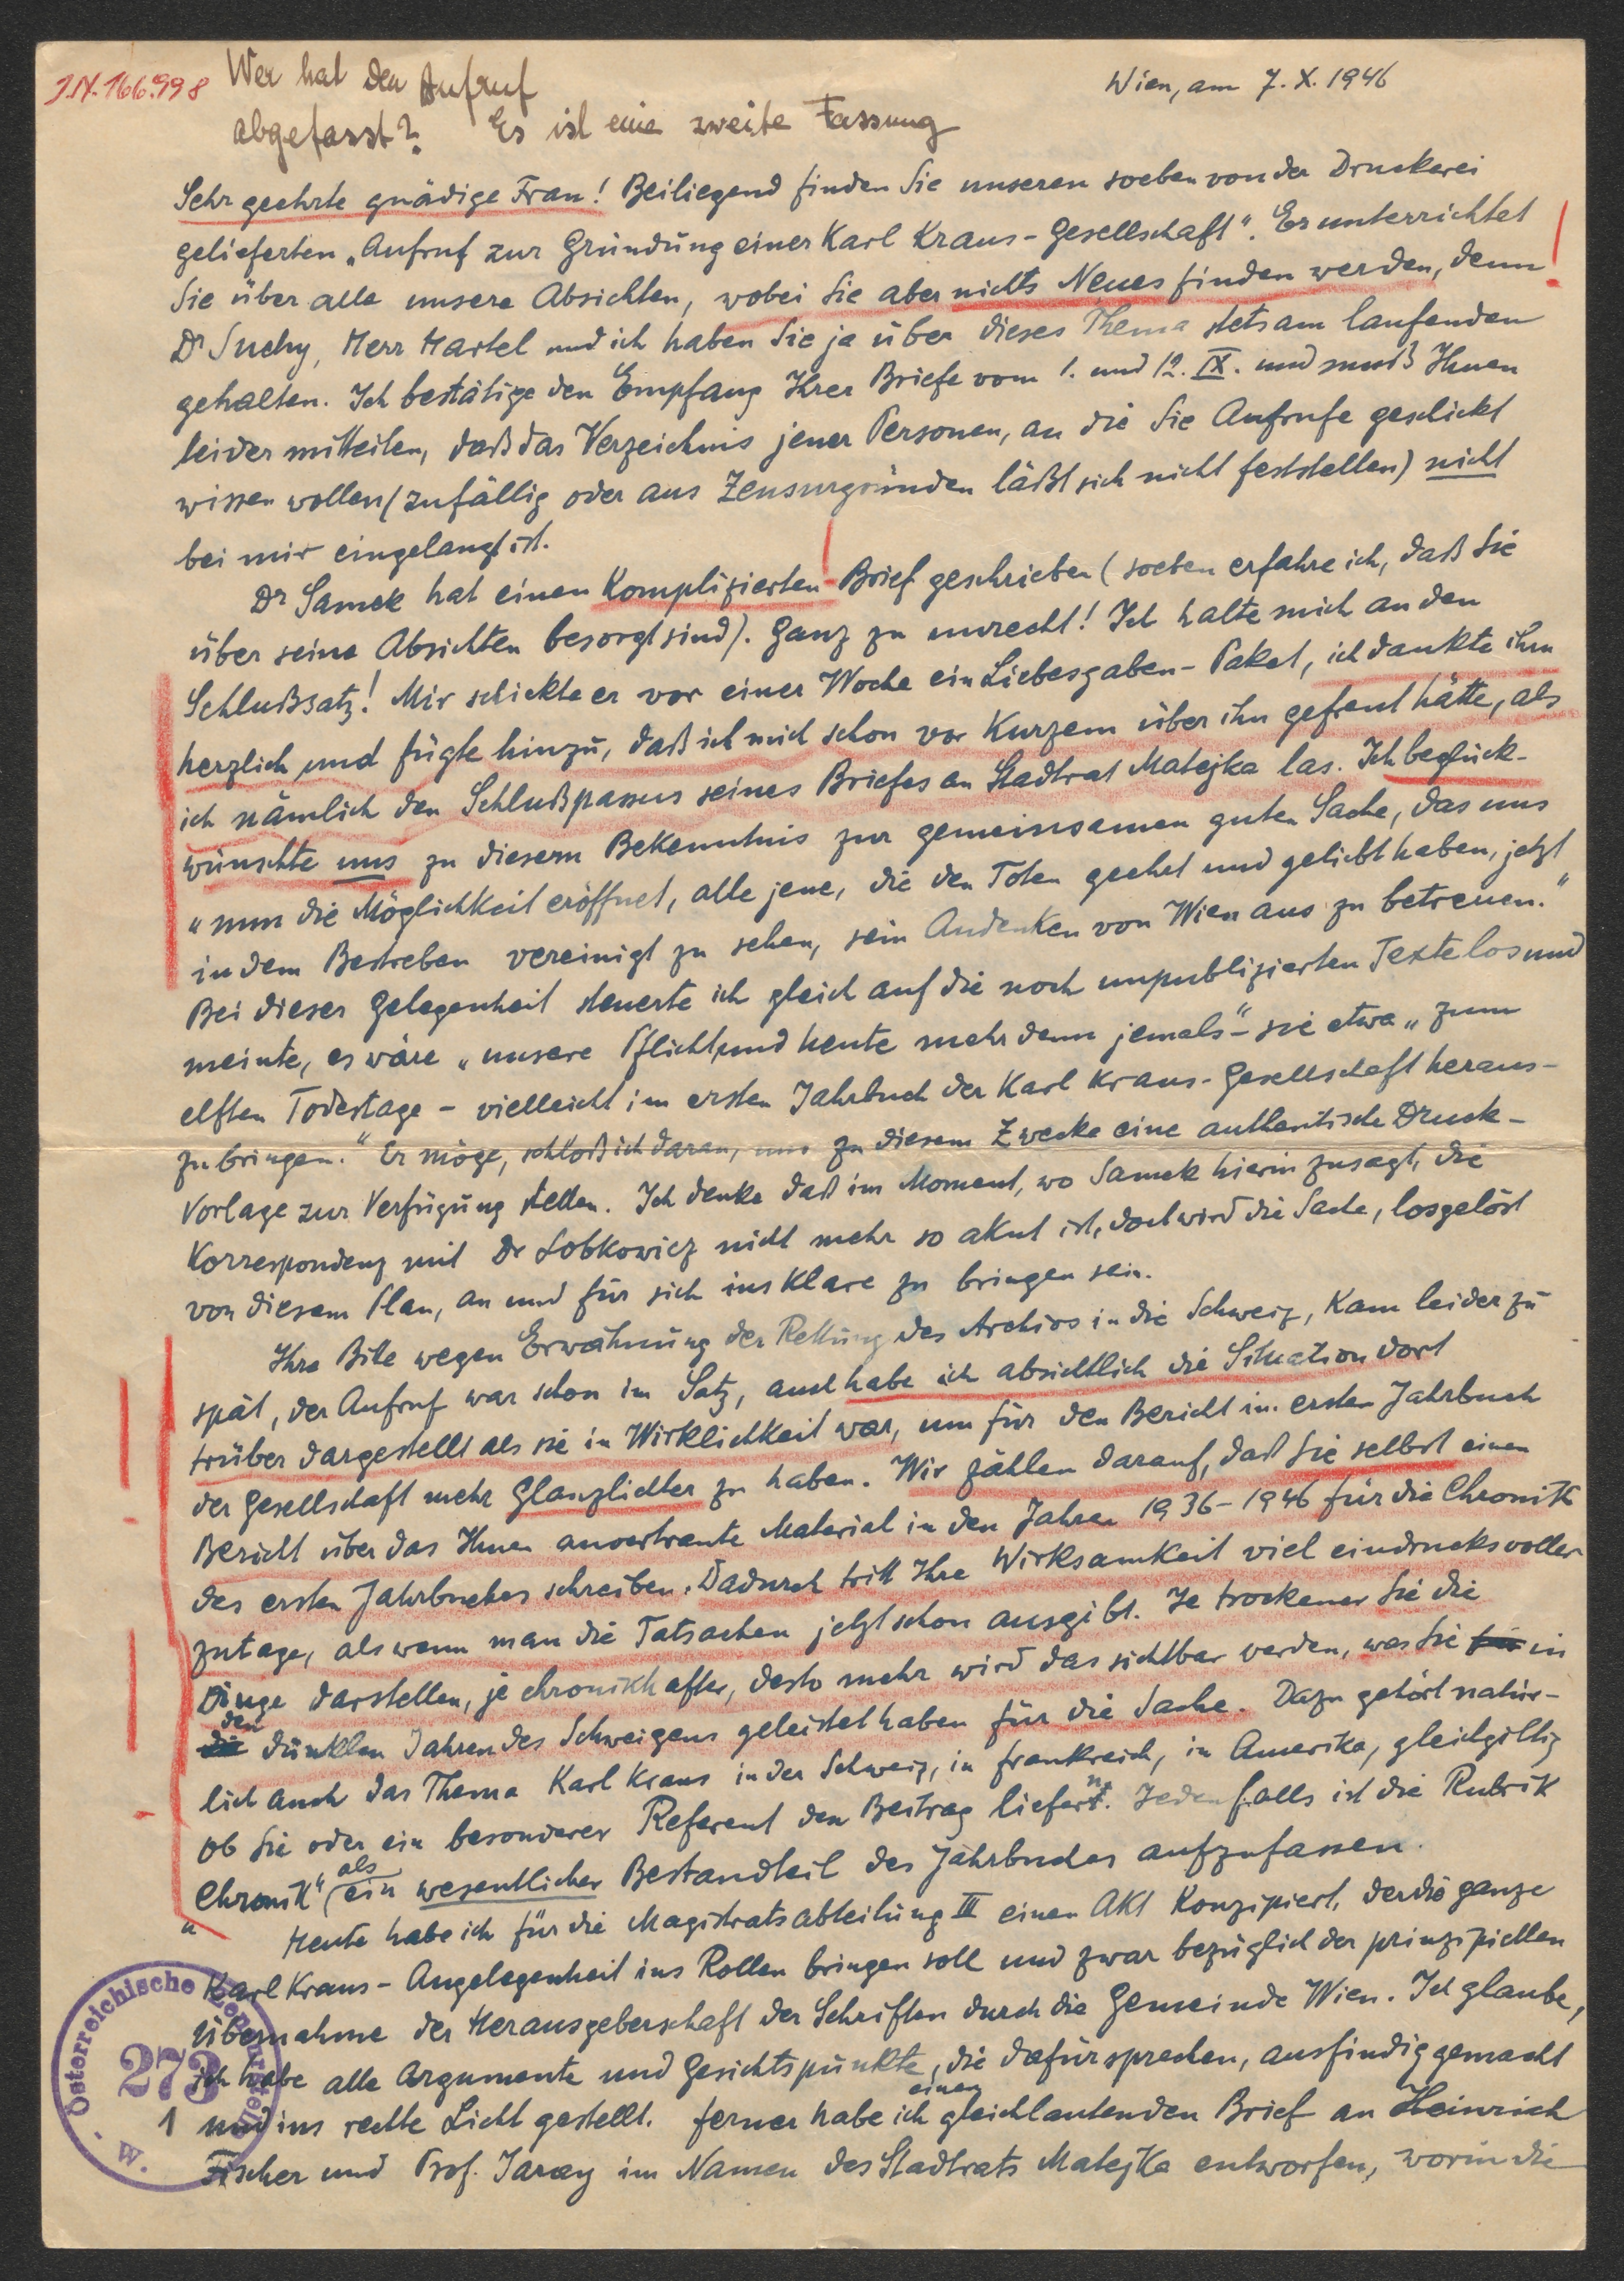 J.N. 166.998
Wer hat den Aufruf
abgefasst? Es ist eine zweite Fassung
Wien, am 7. X. 1946
Sehr geehrte gnädige Frau! Beiliegend finden Sie unseren soeben von der Druckerei
gelieferten „Aufruf zur Gründung einer Karl Kraus-Gesellschaft". Er unterrichtet
Sie über alle unsere Absichten, wobei Sie aber nichts Neues finden werden, denn
Dr Suchy, Herr Hartel und ich haben Sie ja über dieses Thema stets am laufenden
gehalten. Ich bestätige den Empfang Ihrer Briefe vom 1. und 12. IX. und muß Ihnen
leider mitteilen, daß das Verzeichnis jener Personen, an die Sie Aufrufe geschickt
wissen wollen (zufällig oder aus Zensurgründen läßt sich nicht feststellen) nicht
bei mir eingelangt ist.
Dr Samek hat einen komplizierten Brief geschrieben (soeben erfahre ich, daß Sie
über seine Absichten besorgt sind). Ganz zu unrecht! Ich halte mich an den
Schlußsatz! Mir schickte er vor einer Woche ein Liebesgaben-Paket, ich dankte ihm
herzlich und fügte hinzu, daß ich mich schon vor kurzem über ihn gefreut hätte, als
ich nämlich den Schlußpassus seines Briefes an Stadtrat Matejka las. Ich beglück-
wünschte uns zu diesem Bekenntnis zur gemeinsamen guten Sache, das uns
„nun die Möglichkeit eröffnet, alle jene, die den Toten geehrt und geliebt haben, jetzt
in dem Bestreben vereinigt zu sehen, sein Andenken von Wien aus zu betreuen."
Bei dieser Gelegenheit steuerte ich gleich auf die noch unpublizierten Texte los und
meinte, es wäre „unsere Pflicht und heute mehr denn jemals" – sie etwa „zum
elften Todestage – vielleicht im ersten Jahrbuch der Karl Kraus-Gesellschaft heraus-
zubringen." Er möge, schloß ich daran, uns zu diesem Zwecke eine authentische Druck-
vorlage zur Verfügung stellen. Ich denke daß im Moment, wo Samek hierin zusagt, die
Korrespondenz mit Dr Lobkowicz nicht mehr so akut ist, doch wird die Sache, losgelöst
von diesem Plan, an und für sich ins Klare zu bringen sein.
Ihre Bitte wegen Erwähnung der Rettung des Archivs in die Schweiz, kam leider zu
spät, der Aufruf war schon im Satz, auch habe ich absichtlich die Situation dort
trüber dargestellt als sie in Wirklichkeit war, um für den Bericht im ersten Jahrbuch
der Gesellschaft mehr Glanzlichter zu haben. Wir zählen darauf, daß Sie selbst einen
Bericht über das Ihnen anvertraute Material in den Jahren 1936–1946 für die Chronik
des ersten Jahrbuches schreiben. Dadurch tritt Ihre Wirksamkeit viel eindrucksvoller
zutage, als wenn man die Tatsachen jetzt schon ausgibt. Je trockener Sie die
Dinge darstellen, je chronikhafter, desto mehr wird das sichtbar werden, was Sie in
den dunklen Jahren des Schweigens geleistet haben für die Sache. Dazu gehört natür-
lich auch das Thema Karl Kraus in der Schweiz, in Frankreich, in Amerika, gleichgiltig
ob Sie oder ein besonderer Referent den Beitrag liefern. Jedenfalls ist die Rubrik
„Chronik" als ein wesentlicher Bestandteil des Jahrbuches aufzufassen.
Heute habe ich für die Magistratsabteilung III einen Akt konzipiert, der die ganze
Karl Kraus-Angelegenheit ins Rollen bringen soll und zwar bezüglich der prinzipiellen
Übernahme der Herausgeberschaft der Schriften durch die Gemeinde Wien. Ich glaube,
ich habe alle Argumente und Gesichtspunkte, die dafür sprechen, ausfindig gemacht
und ins rechte Licht gestellt. Ferner habe ich einen gleichlautenden Brief an Heinrich
Fischer und Prof. Jaray im Namen des Stadtrats Matejka entworfen, worin die
1
Österreichische Zensurstelle
273
W.